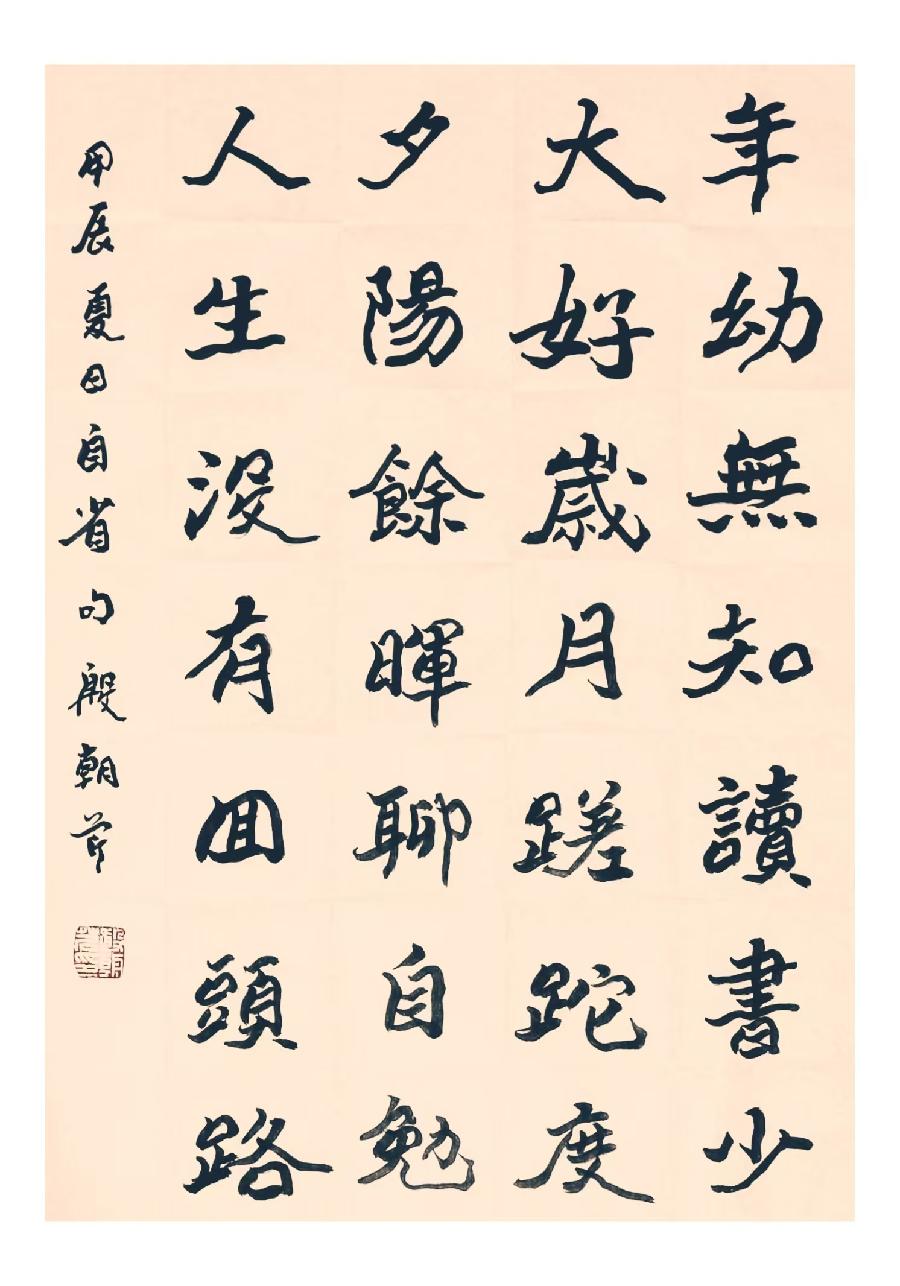 年幼無知讀書少
大好歲月蹉跎度
夕陽餘暉聊自勉
人生沒有回頭路
甲辰夏日自省句殷朝芹